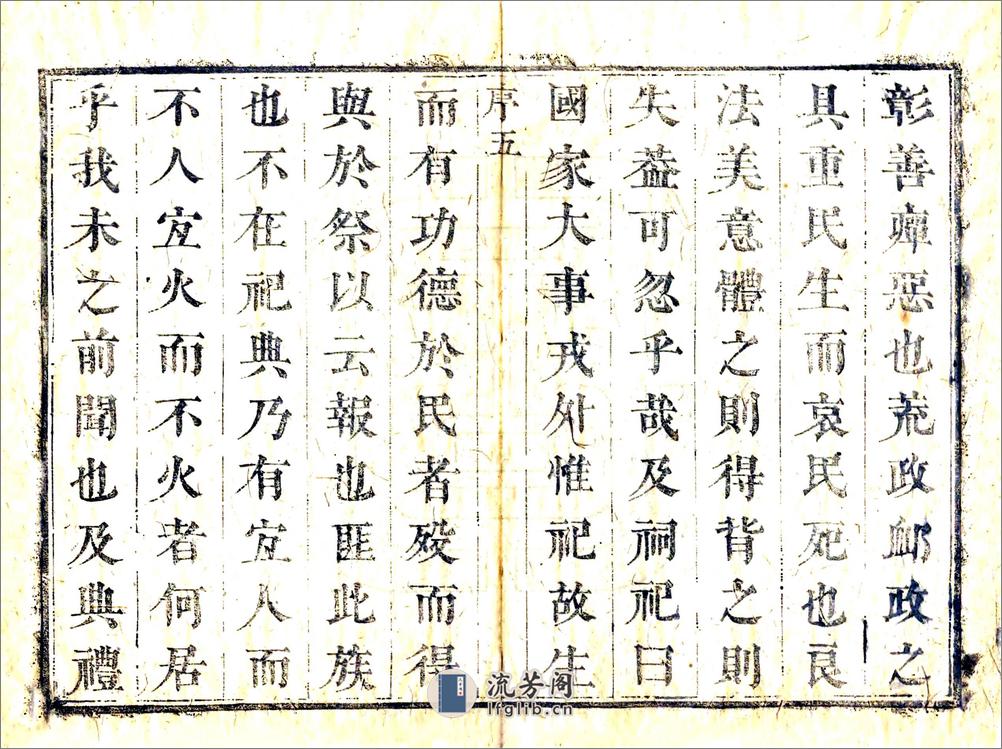 彰善癉惡也荒政卹政之
具重民生而哀民死也良
法美意體之則得背之則
失葢可忽乎哉及祠祀曰
國家大事戎外惟祀故生
序五
而有功德於民者歿而得
與於祭以云報也匪此族
也不在祀典乃有宜人而
不人宜火而不火者何居
乎我未之前聞也及典禮
流芳阁
lfglib.cn